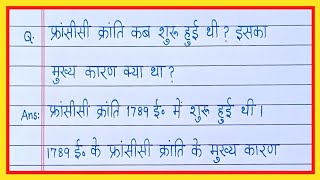 Q. फ्रांसीसी क्रांति कब शुरू हुई थी ? इसका
मुख्य कारण क्या था ?
Ans: फ्रांसीसी क्रांति 1789 ई० में शुरू हुई थी ।
1789 ई० के फ्रांसीसी क्रांति के मुख्य कारण